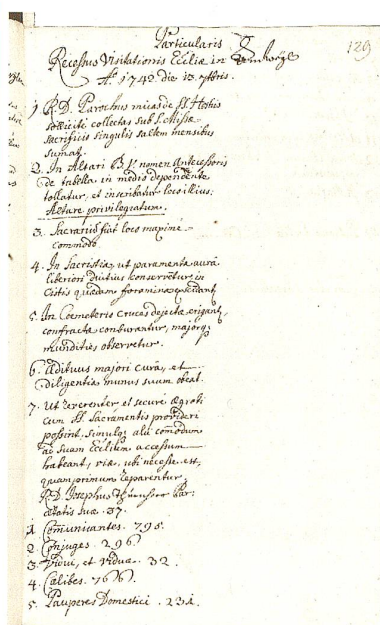 Particularis
Recessus Visitationis Eccliæ in
Aō. 1742 die 13. 7bris.
129
1. R.D. Parochus micas de SS. Hostiis
sollicitè collectas sub S. Missæ
sacrificio singulis saltem mensibus
sumat.
2. In Altari B.V. nomen Antecessoris
de tabella in medio dependente
tollatur, et inscribatur loco illius:
Altare privilegiatum.
3. Sacrarium fiat loco maximè
commodo.
4. In Sacristia, ut paramenta aurâ
liberiori diutius conserventur, in
Cistis quædam foramina
5. In Coemeterio Cruces dejectæ erigant,
confracta comburantur, majorq;
mundities observetur.
6. Ædituus majori curâ, et
diligentiâ munus suum obeat.
7. Ut reverenter et securè ægroti
cum SS. Sacramentis provideri
possint, simulq; alii comodum
ad suam Eccliam accessum
habeant, viæ, ubi necesse est,
quamprimum reparentur.
R.D. Josephus Par:
ætatis suæ. 37.
1. Comunicantes. 795.
2. Conjuges. 296.
3. Vidui, et viduæ. 32.
4. Cælibes. 766.
5. Pauperes Domestici. 231.